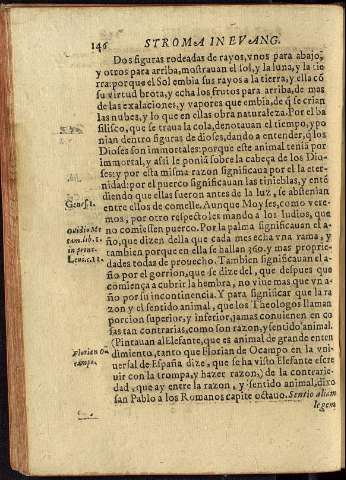 146 STROMA IN EVANG.
Dos figuras rodeadas de rayos, vnos para abajo,
y otros para arriba, mostrauan el sol, y la luna, y la tie
rra: porque el Sol embia sus rayos a la tierra, y ella cõ
su virtud brota, y echa los frutos para arriba, de mas
de las exalaciones, y vapores que embia, de q̃ se crian
las nubes, y lo que en ellas obra naturaleza. Por el ba
silisco, que se traua la cola, denotauan el tiempo, y po
nian dentro figuras de dioses, dando a entender, q̃ los
Dioses son immortales: porque este animal tenia por
immortal, y assi le ponia sobre la cabeça de los Dio-
ses: y por esta misma razon significaua por el la eter-
nidad: por el puerco significauan las tinieblas, y entẽ
Genes. 1.
diendo que ellas fueron antes de la luz, se abstenian
entre ellos de comelle. Aunque Moyses, como vere-
mos, por otro respecto les mando a los Iudios, que
Ouidio Me
no comiessen puerco. Por la palma significauan el a-
tam. lib. 1.
ño, que dizen della que cada mes echa vna rama, y
in princ.
tambien porque en ella se hallan 360. y mas proprie
Leuic. 11.
dades todas de prouecho. Tambien significauan el a-
ño por el gorrion, que se dize del, que despues que
comiença a cubrir la hembra, no viue mas que vn a-
ño por su incontinencia. Y para significar que la ra
zon y el sentido animal, que los Theologos llaman
porcion superior, y inferior, jamas conuienen en co
sas tan contrarias, como son razon, y sentido animal.
(Pintauan al Elefante, que es animal de grande enten
Florian O
dimiento, tanto que Florian de Ocampo en la vni-
campo.
uersal de España dize, que se ha visto Elefante escre
uir con la trompa, y hazer razon,) de la contrarie-
dad, que ay entre la razon, y sentido animal, dixo
san Pablo a los Romanos capite octauo. Sentio aliam
legem